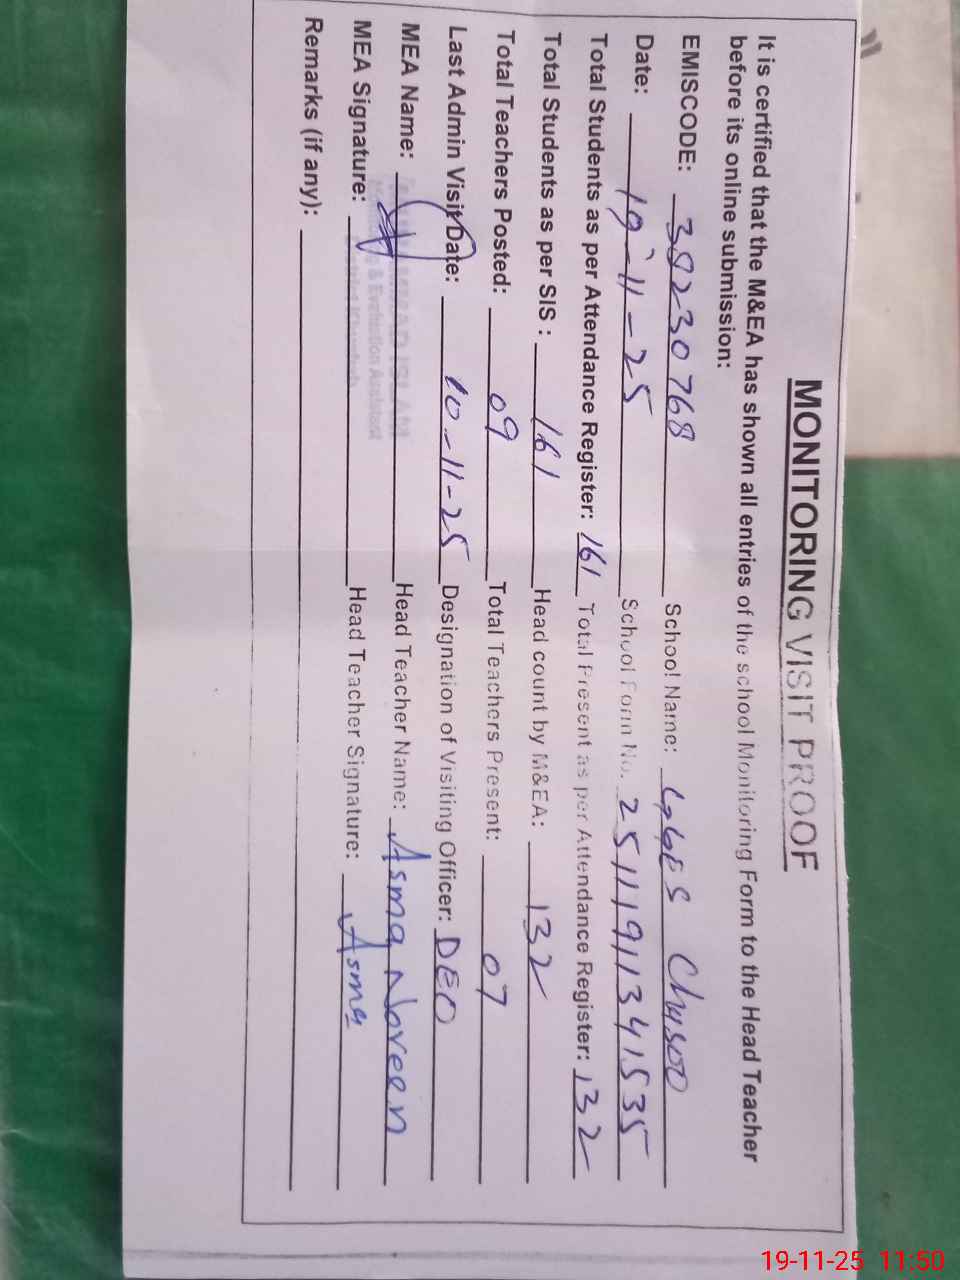 MONITORING VISIT PROOF
It is certified that the M&EA has shown all entries of the school Monitoring Form to the Head Teacher
before its online submission:
EMISCODE: 38230768 School Name: GGES
Date: 19-11-25 School Form No. 25111911341535
Total Students as per Attendance Register: 161 Total Present as per Attendance Register: 132
Total Students as per SIS : 161 Head count by M&EA: 132
Total Teachers Posted: 09 Total Teachers Present: 07
Last Admin Visit Date: 10-11-25 Designation of Visiting Officer: DEO
MEA Name: Head Teacher Name: Asma Noreen
MEA Signature: Head Teacher Signature: Asma
Remarks (if any):
19-11-25 11:50